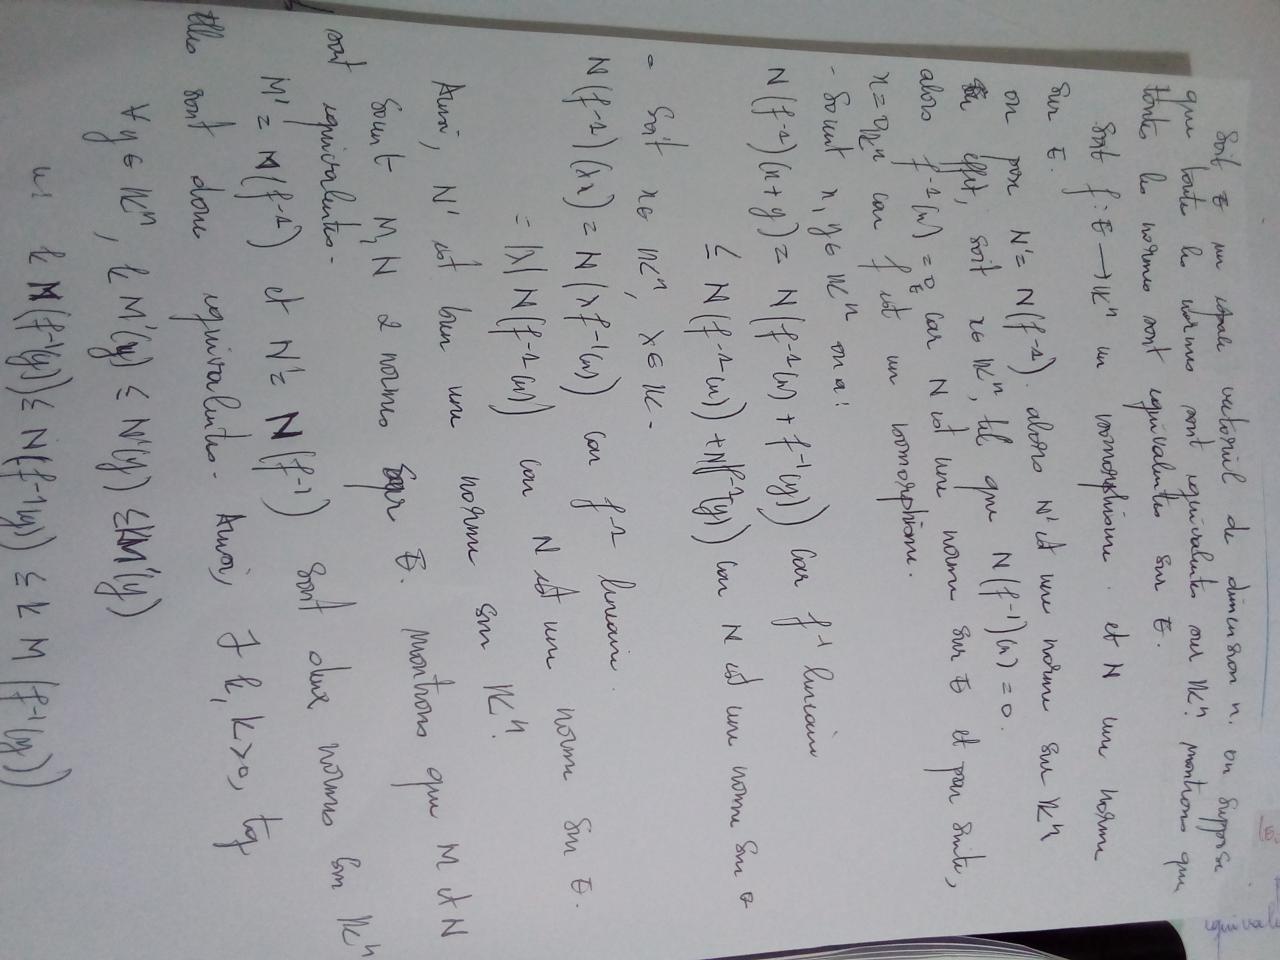 Soit E un espace vectoriel de dimension n. on suppose
que toute les normes sont equivalentes sur K^n. montrons que
toutes les normes sont equivalentes sur E.
soit f: E → K^n un isomorphisme. et N une norme
sur E.
on pose N' = N(f^-1). alors N' est une norme sur K^n
en effet, soit x ∈ K^n, tel que N(f^-1)(x) = 0.
alors f^-1(x) = 0_E car N est une norme sur E et par suite,
x = 0_K^n car f est un isomorphisme.
- Soient x, y ∈ K^n on a:
N(f^-1)(x+y) = N(f^-1(x) + f^-1(y)) car f^-1 lineaire
≤ N(f^-1(x)) + N(f^-1(y)) car N est une norme sur E
- Soit x ∈ K^n, λ ∈ K.
N(f^-1)(λx) = N(λ f^-1(x)) car f^-1 lineaire.
= |λ| N(f^-1(x)) car N est une norme sur E.
Ainsi, N' est bien une norme sur K^n.
Soient M, N 2 normes sur E. montrons que M et N
sont equivalentes.
M' = M(f^-1) et N' = N(f^-1) sont deux normes sur K^n
elles sont donc equivalentes. Ainsi, ∃ k, K > 0, tq
∀ y ∈ K^n, k M'(y) ≤ N'(y) ≤ K M'(y)
k M(f^-1(y)) ≤ N(f^-1(y)) ≤ k M(f^-1(y))